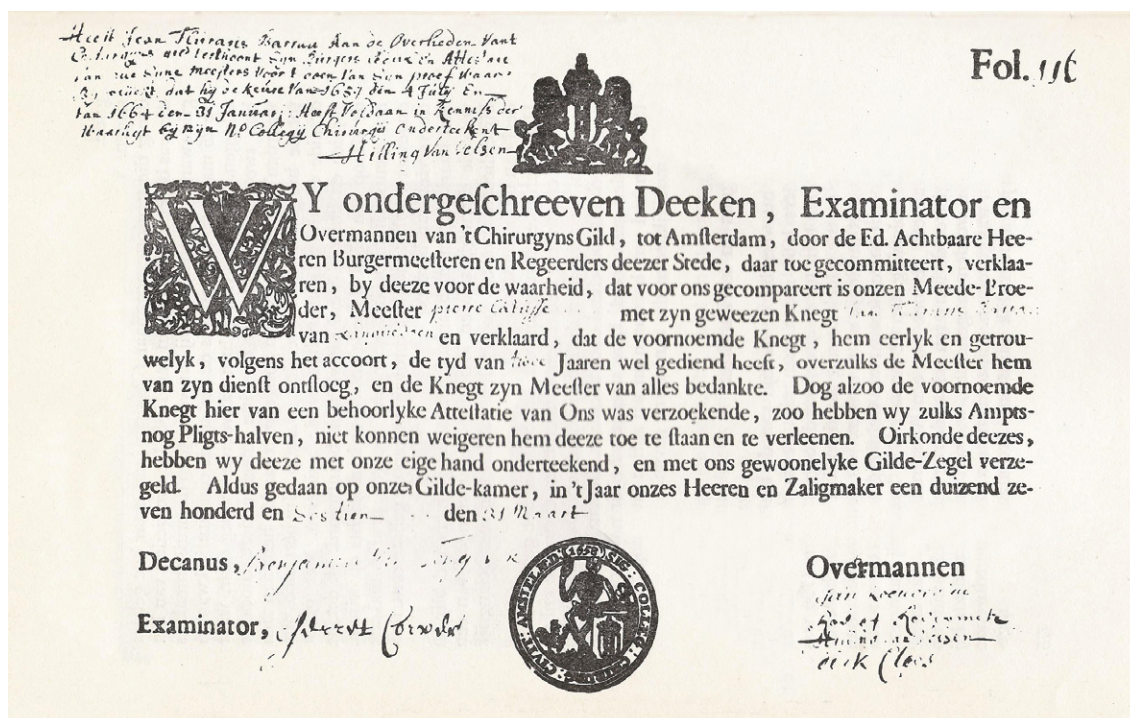 Heeft Jean Aan de Overheden Vant
Syn Burgers en
Meesters Voor Syn proef
dat hy de keure Van 1657 den 4 July En
Van 1664 den 31 Januarij: Heeft Voldaan in Kennisse der
Waarheyt bij mijn No Collegij Chirurgij Onderteekent
Hilling Van
Fol. 116
WY ondergeſchreeven Deeken, Examinator en
Overmannen van 't Chirurgyns Gild, tot Amſterdam, door de Ed. Achtbaare Hee-
ren Burgermeeſteren en Regeerders deezer Stede, daar toe gecommitteert, verklaa-
ren, by deeze voor de waarheid, dat voor ons gecompareert is onzen Meede-Broe-
der, Meeſter pierre met zyn geweezen Knegt
van en verklaard, dat de voornoemde Knegt, hem eerlyk en getrou-
welyk, volgens het accoort, de tyd van Jaaren wel gediend heeft, overzulks de Meeſter hem
van zyn dienſt ontſloeg, en de Knegt zyn Meeſter van alles bedankte. Dog alzoo de voornoemde
Knegt hier van een behoorlyke Atteſtatie van Ons was verzoekende, zoo hebben wy zulks Ampts-
nog Pligts-halven, niet konnen weigeren hem deeze toe te ſtaan en te verleenen. Oirkonde deezes,
hebben wy deeze met onze eige hand onderteekend, en met ons gewoonelyke Gilde-Zegel verze-
geld. Aldus gedaan op onze Gilde-kamer, in 't Jaar onzes Heeren en Zaligmaker een duizend ze-
ven honderd en Sestien den 31 Maart
Decanus, Benjamin
Overmannen
Jan
Examinator, Gerret
dirk Cloes
1658 SIG: COLLEG: CHIRURG: CIVIT: AMSTELÆD: